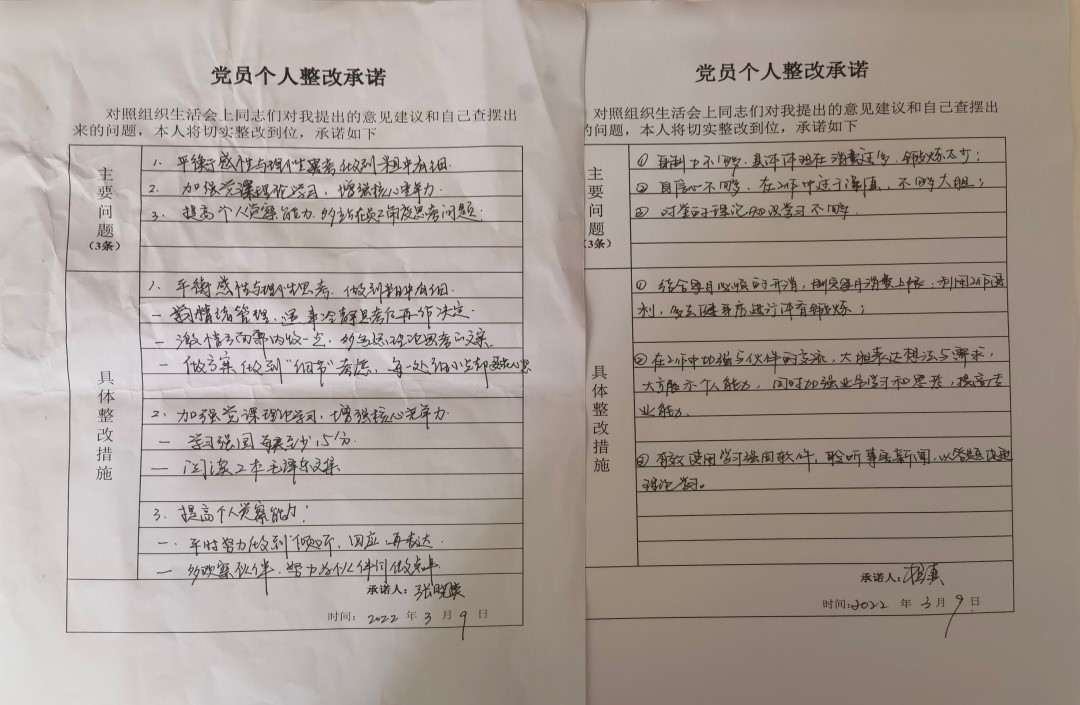 党员个人整改承诺
对照组织生活会上同志们对我提出的意见建议和自己查摆出
来的问题，本人将切实整改到位，承诺如下
主要问题
（3条）
1. 平衡感性与理性思考 做到粗中有细.
2. 加强党课理论学习，增强核心竞争力.
3. 提高个人觉察能力，多站在员工角度思考问题.
具体整改措施
1. 平衡感性与理性思考. 做到粗中有细.
一 情绪管理. 遇事冷静思考后再作决定.
一 做方案做到“细节”考虑，每一处细小
2. 加强党课理论学习，增强核心竞争力.
一 学习强国每天至少15分.
一 阅读2本毛泽东文集
3. 提高个人觉察能力：
一. 平时努力做到“倾听、回应、再表达.
一 多观察伙伴. 努力为伙伴们做
承诺人：张
时间：2022 年 3 月 9 日
党员个人整改承诺
对照组织生活会上同志们对我提出的意见建议和自己查摆出
的问题，本人将切实整改到位，承诺如下
主要问题
（3条）
① 自制力不够，具体体现在消费过多，锻炼太少；
② 自信心不够，在工作中过于谨慎，不够大胆；
③ 对党的理论知识学习不够.
具体整改措施
① 结合每月必须的开消，制定每月消费上限；利用工作便
利，多去健身房进行体育锻炼；
② 在工作中加强与伙伴的交流，大胆表达想法与需求，
大方展示个人能力，同时加强业务学习和思考，提高专
业能力.
③ 有效使用学习强国软件，聆听事实新闻，以答题促进
理论学习。
承诺人：
时间：2022 年 3 月 9 日